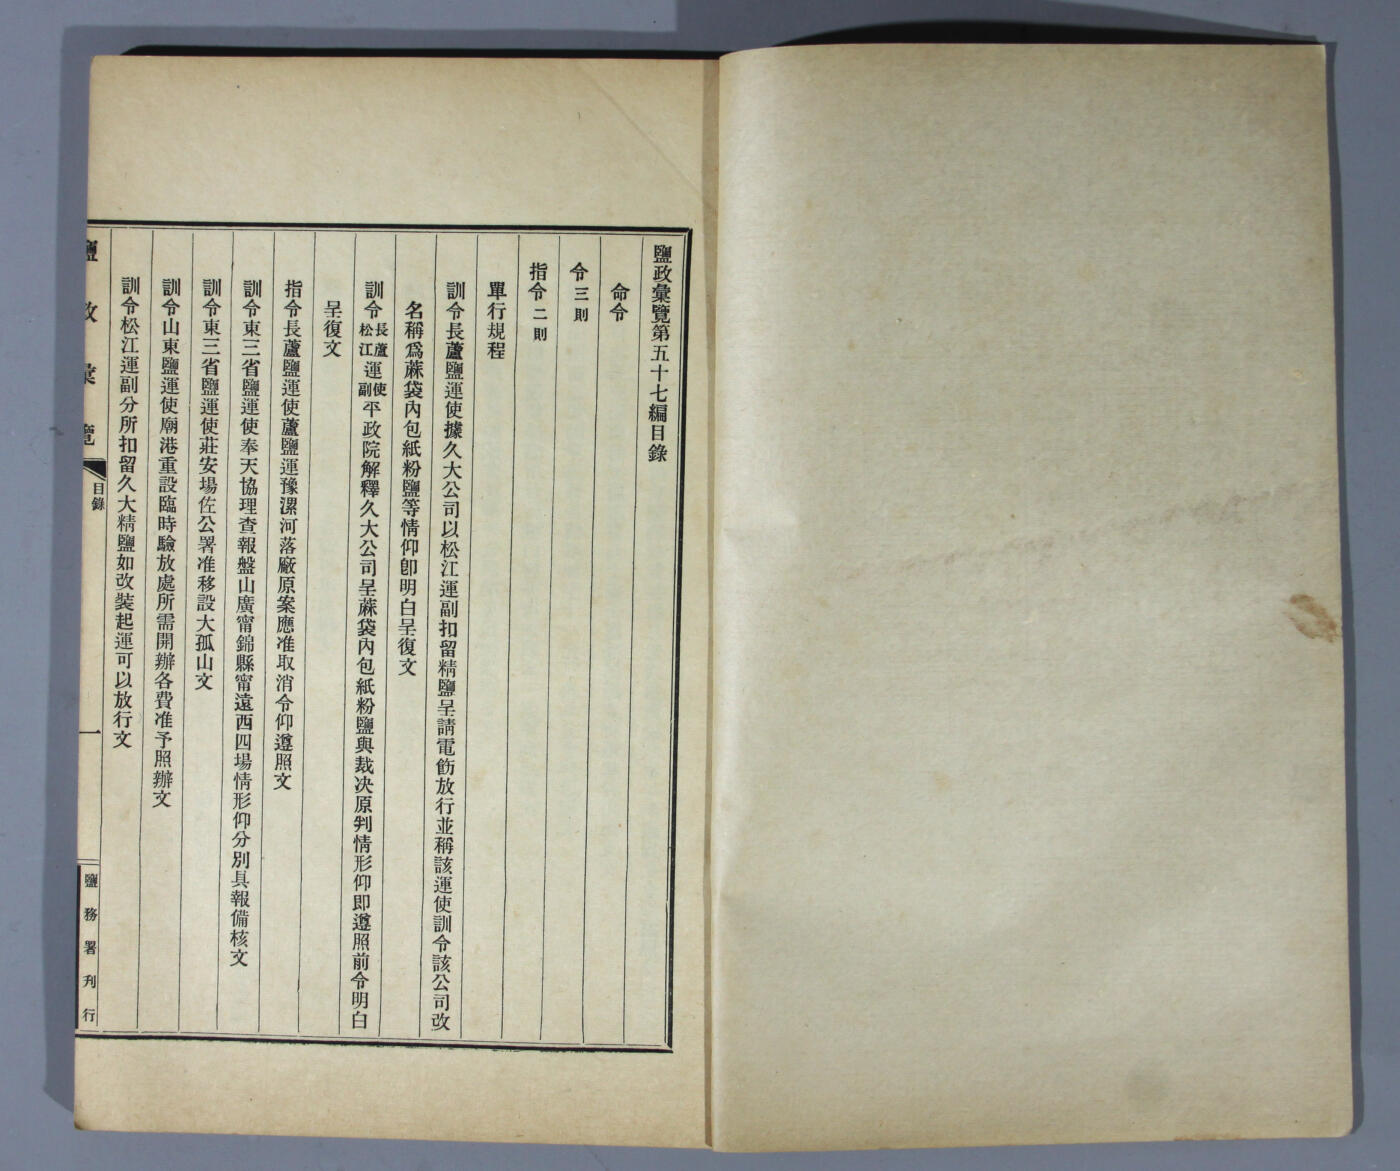 鹽政彙覽第五十七編目錄
命令
令三則
指令二則
單行規程
訓令長蘆鹽運使據久大公司以松江運副扣留精鹽呈請電飭放行並稱該運使訓令該公司改
名稱爲蔴袋內包紙粉鹽等情仰卽明白呈復文
訓令長蘆松江運使副平政院解釋久大公司呈蔴袋內包紙粉鹽與裁決原判情形仰卽遵照前令明白
呈復文
指令長蘆鹽運使蘆鹽運豫漯河落廠原案應准取消令仰遵照文
訓令東三省鹽運使奉天協理查報盤山廣甯錦縣甯遠西四場情形仰分別具報備核文
訓令東三省鹽運使莊安場佐公署准移設大孤山文
訓令山東鹽運使廟港重設臨時驗放處所需開辦各費准予照辦文
訓令松江運副分所扣留久大精鹽如改裝起運可以放行文
鹽政彙覽
目錄
一
鹽務署刋行